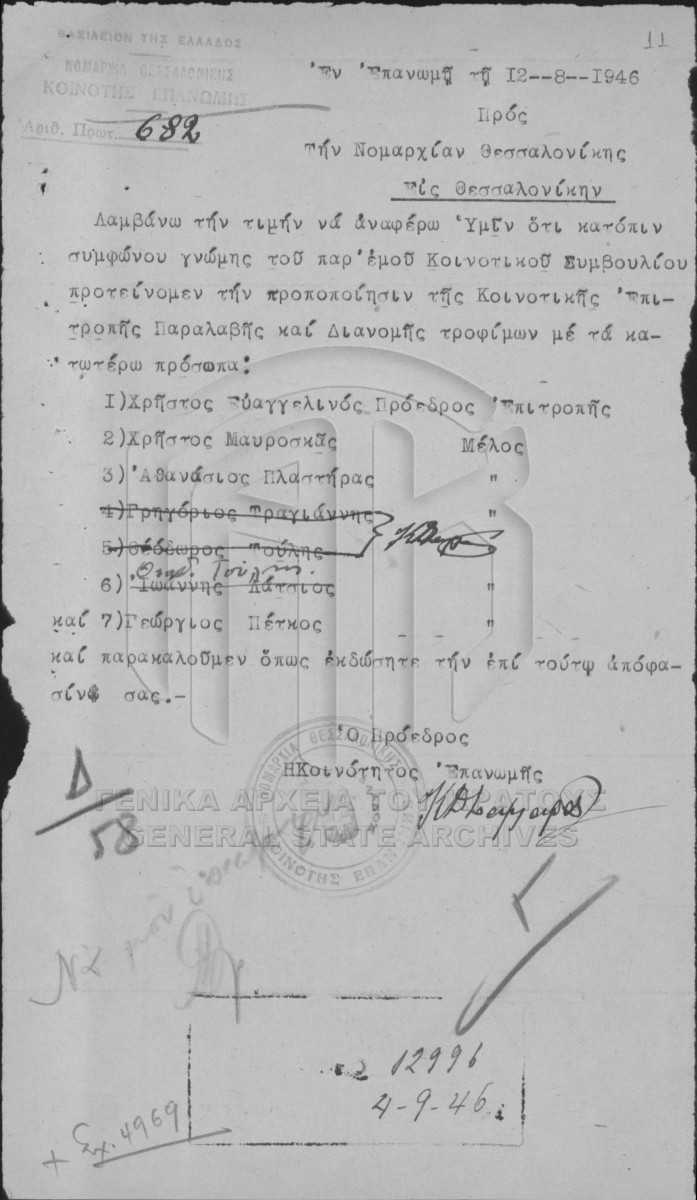 11
ΒΑΣΙΛΕΙΟΝ ΤΗΣ ΕΛΛΑΔΟΣ
ΝΟΜΑΡΧΙΑ ΘΕΣΣΑΛΟΝΙΚΗΣ
ΚΟΙΝΟΤΗΣ ΕΠΑΝΩΜΗΣ
Ἀριθ. Πρωτ. 682
Ἐν Ἐπανωμῇ τῇ 12--8--1946
Πρός
Τήν Νομαρχίαν Θεσσαλονίκης
Εἰς Θεσσαλονίκην
Λαμβάνω τήν τιμήν νά ἀναφέρω Ὑμῖν ὅτι κατόπιν
συμφώνου γνώμης τοῦ παρ'ἐμοῦ Κοινοτικοῦ Συμβουλίου
προτείνομεν τήν προποποίησιν τῆς Κοινοτικῆς Ἐπι-
τροπῆς Παραλαβῆς καί Διανομῆς τροφίμων μέ τά κα-
τωτέρω πρόσωπα:
1)Χρῆστος Εὐαγγελινός Πρόεδρος Ἐπιτροπῆς
2)Χρῆστος Μαυροσκᾶς Μέλος
3)Ἀθανάσιος Πλαστήρας "
4)Γρηγόριος Τραγιάννης "
5)Θεόδωρος Τούλης
Θεοδ. Τούλης.
6) Ἰωάννης Λάτσιος "
καί 7)Γεώργιος Πέτκος "
καί παρακαλοῦμεν ὅπως ἐκδώσητε τήν ἐπί τούτῳ ἀπόφα-
σίν σας.-
Ὁ Πρόεδρος
ΗΚοινότητος Ἐπανωμῆς
ΝΟΜΑΡΧΙΑ ΘΕΣΣΑΛΟΝΙΚΗΣ
ΚΟΙΝΟΤΗΣ ΕΠΑΝ
Δ/58
ΓΕΝΙΚΑ ΑΡΧΕΙΑ ΤΟΥ ΚΡΑΤΟΥΣ
GENERAL STATE ARCHIVES
Νὰ μοῦ
12996
4-9-46
+ Σχ. 4969